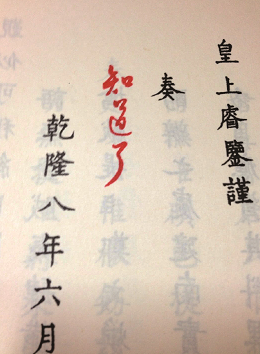 皇上睿鑒謹
奏
知道了
乾隆八年六月